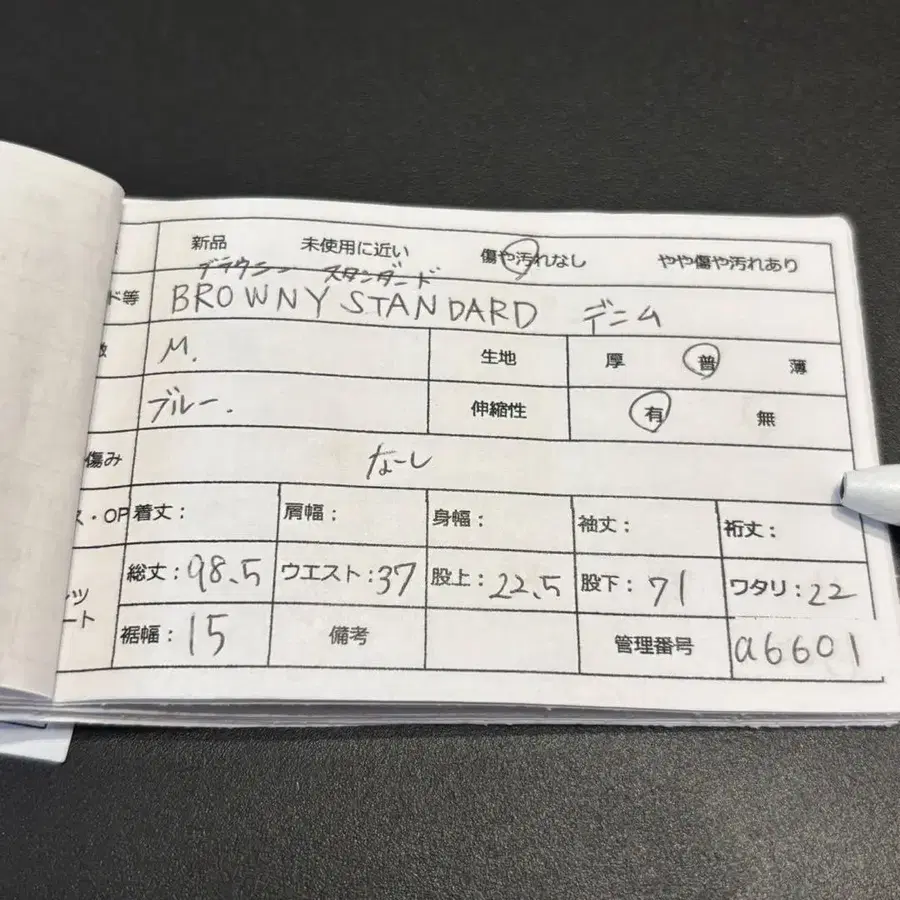 新品 未使用に近い 傷や汚れなし やや傷や汚れあり
ブラウニー スタンダード
ド等 BROWNY STANDARD デニム
M. 生地 厚 普 薄
ブルー. 伸縮性 有 無
傷み なし
ス・OP 着丈： 肩幅： 身幅： 袖丈： 裄丈：
総丈：98.5 ウエスト：37 股上：22.5 股下：71 ワタリ：22
ツ
ート
裾幅：15 備考 管理番号 a6601